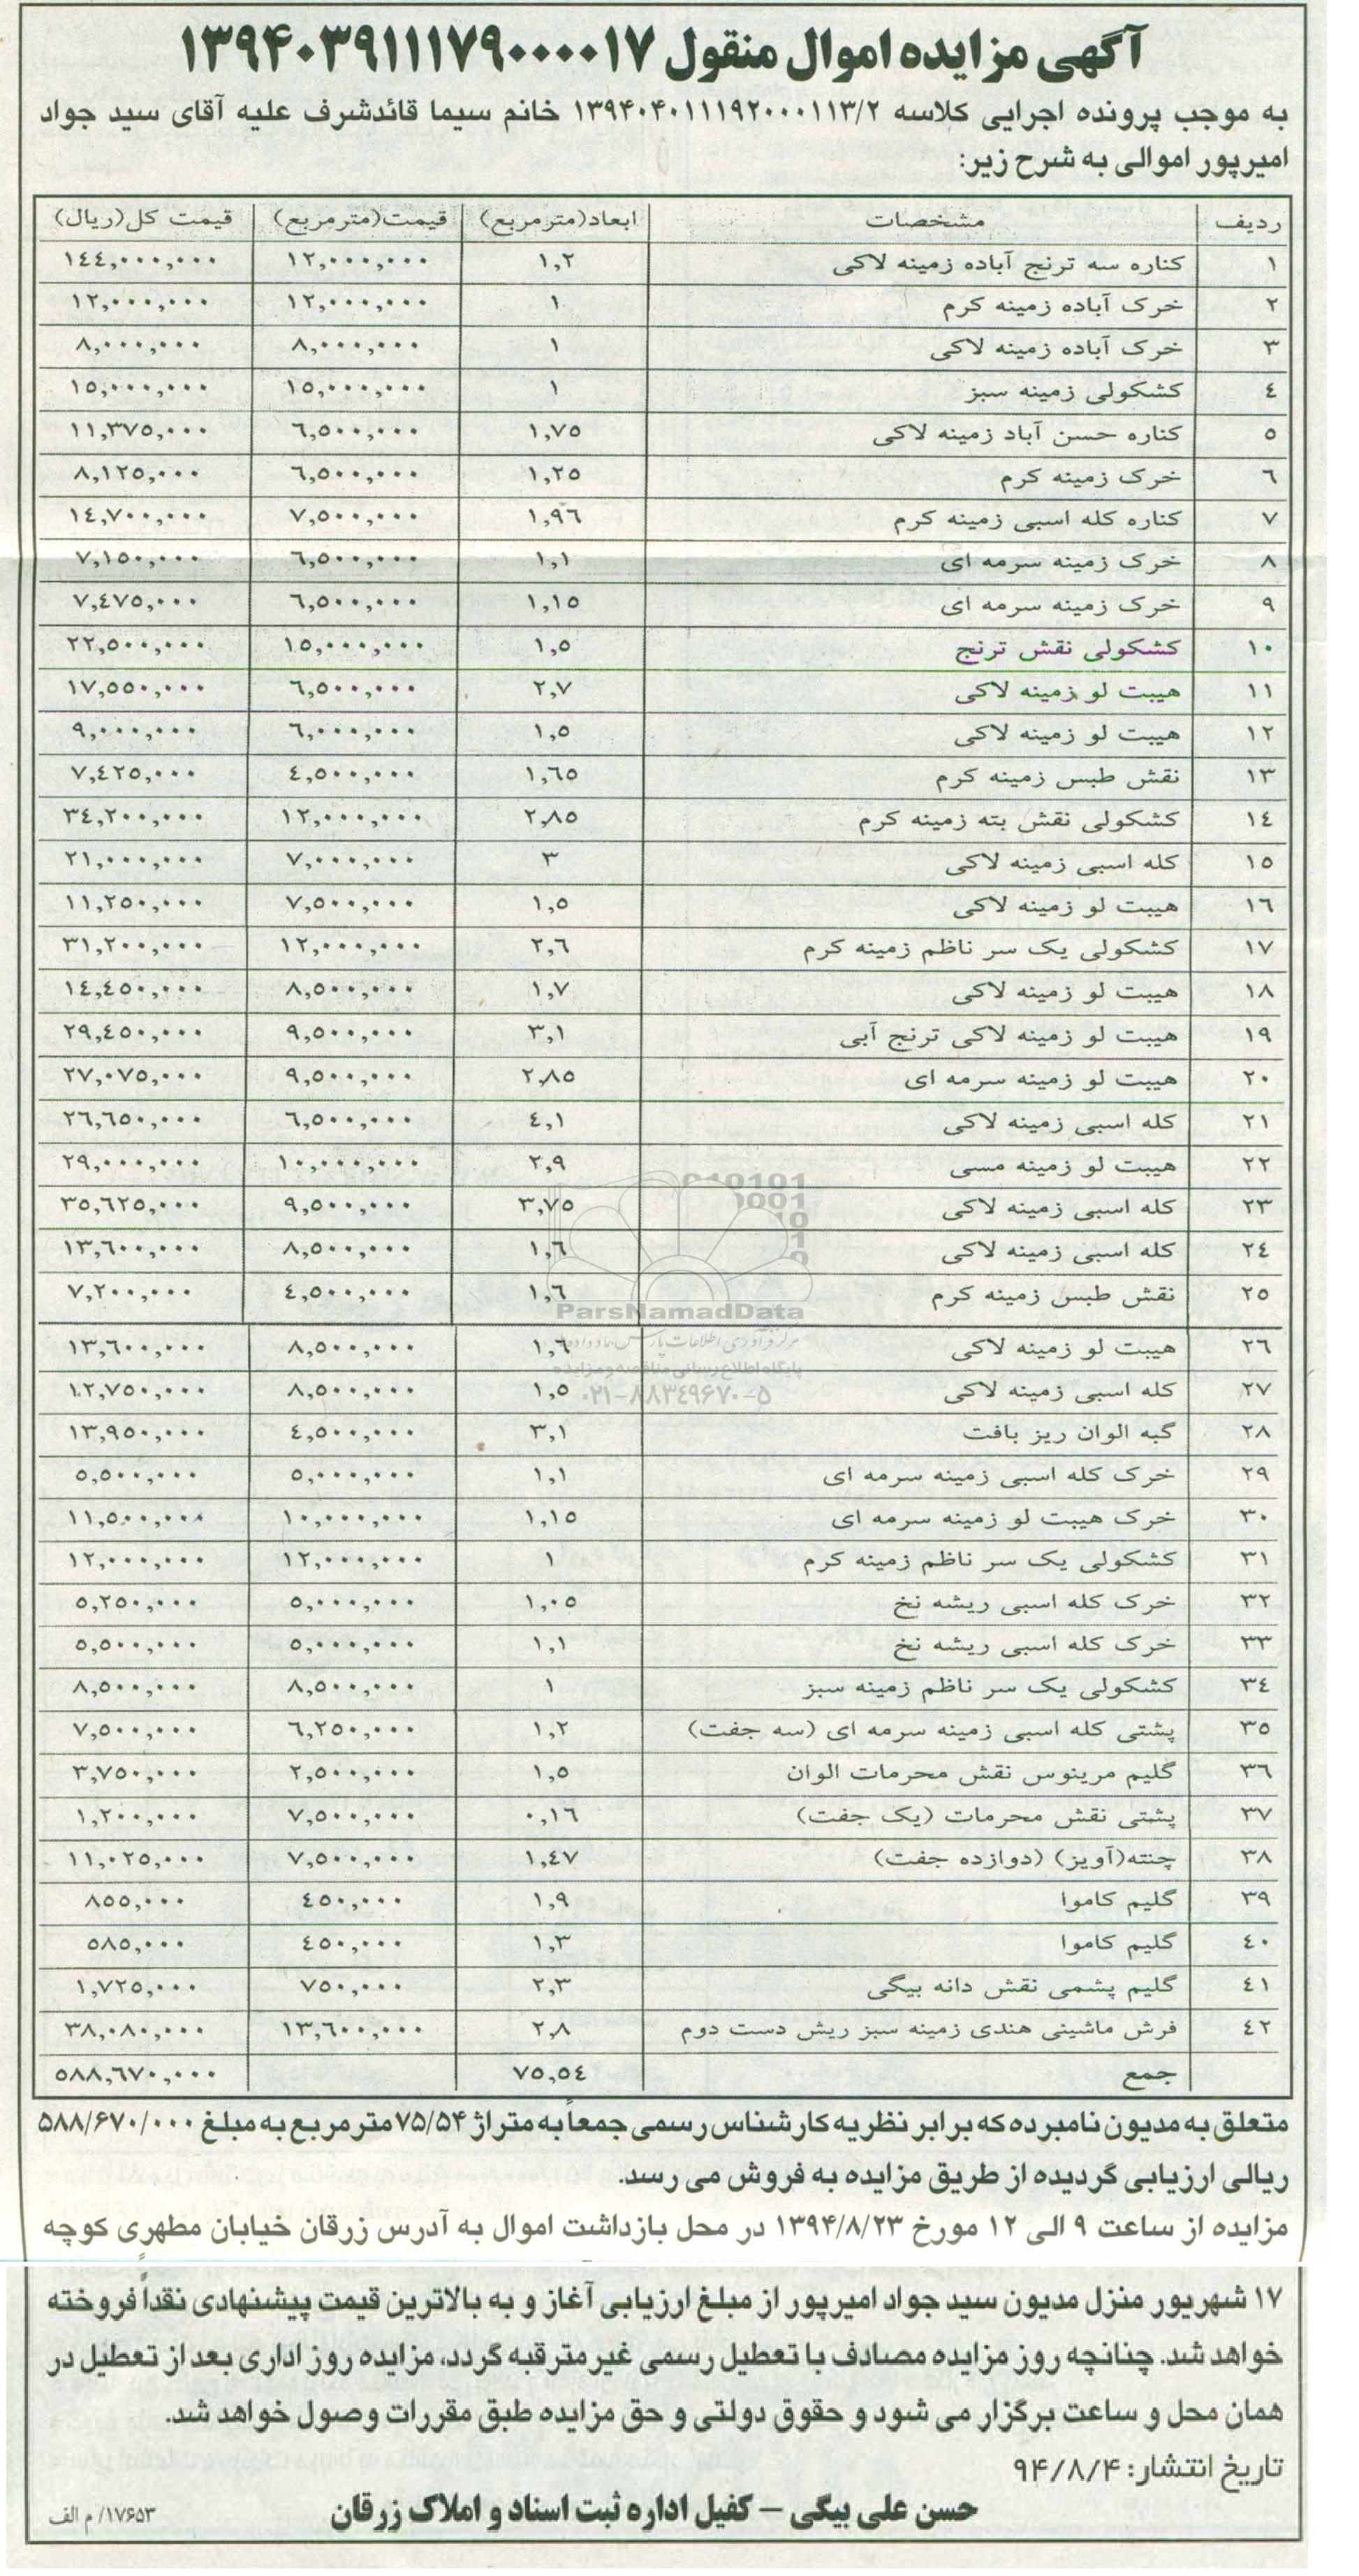 آگهی مزایده اموال منقول ۱۳۹۴۰۳۹۱۱۱۷۹۰۰۰۰۱۷
به موجب پرونده اجرایی کلاسه ۱۳۹۴۰۴۰۱۱۱۹۲۰۰۰۱۱۳/۲ خانم سیما قائدشرف علیه آقای سید جواد
امیرپور اموالی به شرح زیر:
ردیف مشخصات ابعاد(مترمربع) قیمت(مترمربع) قیمت کل(ریال)
۱ کناره سه ترنج آباده زمینه لاکی ۱,۲ ۱۲,۰۰۰,۰۰۰ ۱٤٤,۰۰۰,۰۰۰
۲ خرک آباده زمینه کرم ۱ ۱۲,۰۰۰,۰۰۰ ۱۲,۰۰۰,۰۰۰
۳ خرک آباده زمینه لاکی ۱ ۸,۰۰۰,۰۰۰ ۸,۰۰۰,۰۰۰
٤ کشکولی زمینه سبز ۱ ۱۵,۰۰۰,۰۰۰ ۱۵,۰۰۰,۰۰۰
۵ کناره حسن آباد زمینه لاکی ۱,۷۵ ٦,۵۰۰,۰۰۰ ۱۱,۳۷۵,۰۰۰
٦ خرک زمینه کرم ۱,۲۵ ٦,۵۰۰,۰۰۰ ۸,۱۲۵,۰۰۰
۷ کناره کله اسبی زمینه کرم ۱,۹٦ ۷,۵۰۰,۰۰۰ ۱٤,۷۰۰,۰۰۰
۸ خرک زمینه سرمه ای ۱,۱ ٦,۵۰۰,۰۰۰ ۷,۱۵۰,۰۰۰
۹ خرک زمینه سرمه ای ۱,۱۵ ٦,۵۰۰,۰۰۰ ۷,٤۷۵,۰۰۰
۱۰ کشکولی نقش ترنج ۱,۵ ۱۵,۰۰۰,۰۰۰ ۲۲,۵۰۰,۰۰۰
۱۱ هیبت لو زمینه لاکی ۲,۷ ٦,۵۰۰,۰۰۰ ۱۷,۵۵۰,۰۰۰
۱۲ هیبت لو زمینه لاکی ۱,۵ ٦,۰۰۰,۰۰۰ ۹,۰۰۰,۰۰۰
۱۳ نقش طبس زمینه کرم ۱,٦۵ ٤,۵۰۰,۰۰۰ ۷,٤۲۵,۰۰۰
۱٤ کشکولی نقش بته زمینه کرم ۲,۸۵ ۱۲,۰۰۰,۰۰۰ ۳٤,۲۰۰,۰۰۰
۱۵ کله اسبی زمینه لاکی ۳ ۷,۰۰۰,۰۰۰ ۲۱,۰۰۰,۰۰۰
۱٦ هیبت لو زمینه لاکی ۱,۵ ۷,۵۰۰,۰۰۰ ۱۱,۲۵۰,۰۰۰
۱۷ کشکولی یک سر ناظم زمینه کرم ۲,٦ ۱۲,۰۰۰,۰۰۰ ۳۱,۲۰۰,۰۰۰
۱۸ هیبت لو زمینه لاکی ۱,۷ ۸,۵۰۰,۰۰۰ ۱٤,٤۵۰,۰۰۰
۱۹ هیبت لو زمینه لاکی ترنج آبی ۳,۱ ۹,۵۰۰,۰۰۰ ۲۹,٤۵۰,۰۰۰
۲۰ هیبت لو زمینه سرمه ای ۲,۸۵ ۹,۵۰۰,۰۰۰ ۲۷,۰۷۵,۰۰۰
۲۱ کله اسبی زمینه لاکی ٤,۱ ٦,۵۰۰,۰۰۰ ۲٦,٦۵۰,۰۰۰
۲۲ هیبت لو زمینه مسی ۲,۹ ۱۰,۰۰۰,۰۰۰ ۲۹,۰۰۰,۰۰۰
۲۳ کله اسبی زمینه لاکی ۳,۷۵ ۹,۵۰۰,۰۰۰ ۳۵,٦۲۵,۰۰۰
۲٤ کله اسبی زمینه لاکی ۱,٦ ۸,۵۰۰,۰۰۰ ۱۳,٦۰۰,۰۰۰
۲۵ نقش طبس زمینه کرم ۱,٦ ٤,۵۰۰,۰۰۰ ۷,۲۰۰,۰۰۰
ParsNamadData
۲٦ هیبت لو زمینه لاکی ۱,٦ ۸,۵۰۰,۰۰۰ ۱۳,٦۰۰,۰۰۰
پایگاه اطلاع رسانی مناقصه و مزایده
۲۷ کله اسبی زمینه لاکی ۱,۵ ۸,۵۰۰,۰۰۰ ۱۲,۷۵۰,۰۰۰
۰۲۱-۸۸۳۴۹۶۷۰-۵
۲۸ گبه الوان ریز بافت ۳,۱ ٤,۵۰۰,۰۰۰ ۱۳,۹۵۰,۰۰۰
۲۹ خرک کله اسبی زمینه سرمه ای ۱,۱ ۵,۰۰۰,۰۰۰ ۵,۵۰۰,۰۰۰
۳۰ خرک هیبت لو زمینه سرمه ای ۱,۱۵ ۱۰,۰۰۰,۰۰۰ ۱۱,۵۰۰,۰۰۰
۳۱ کشکولی یک سر ناظم زمینه کرم ۱ ۱۲,۰۰۰,۰۰۰ ۱۲,۰۰۰,۰۰۰
۳۲ خرک کله اسبی ریشه نخ ۱,۰۵ ۵,۰۰۰,۰۰۰ ۵,۲۵۰,۰۰۰
۳۳ خرک کله اسبی ریشه نخ ۱,۱ ۵,۰۰۰,۰۰۰ ۵,۵۰۰,۰۰۰
۳٤ کشکولی یک سر ناظم زمینه سبز ۱ ۸,۵۰۰,۰۰۰ ۸,۵۰۰,۰۰۰
۳۵ پشتی کله اسبی زمینه سرمه ای (سه جفت) ۱,۲ ٦,۲۵۰,۰۰۰ ۷,۵۰۰,۰۰۰
۳٦ گلیم مرینوس نقش محرمات الوان ۱,۵ ۲,۵۰۰,۰۰۰ ۳,۷۵۰,۰۰۰
۳۷ پشتی نقش محرمات (یک جفت) ۰,۱٦ ۷,۵۰۰,۰۰۰ ۱,۲۰۰,۰۰۰
۳۸ چنته(آویز) (دوازده جفت) ۱,٤۷ ۷,۵۰۰,۰۰۰ ۱۱,۰۲۵,۰۰۰
۳۹ گلیم کاموا ۱,۹ ٤۵۰,۰۰۰ ۸۵۵,۰۰۰
٤۰ گلیم کاموا ۱,۳ ٤۵۰,۰۰۰ ۵۸۵,۰۰۰
٤۱ گلیم پشمی نقش دانه بیگی ۲,۳ ۷۵۰,۰۰۰ ۱,۷۲۵,۰۰۰
٤۲ فرش ماشینی هندی زمینه سبز ریش دست دوم ۲,۸ ۱۳,٦۰۰,۰۰۰ ۳۸,۰۸۰,۰۰۰
جمع ۷۵,۵٤ ۵۸۸,٦۷۰,۰۰۰
متعلق به مدیون نامبرده که برابر نظریه کارشناس رسمی جمعاً به متراژ ۷۵/۵۴ مترمربع به مبلغ ۵۸۸/۶۷۰/۰۰۰
ریالی ارزیابی گردیده از طریق مزایده به فروش می رسد.
مزایده از ساعت ۹ الی ۱۲ مورخ ۱۳۹۴/۸/۲۳ در محل بازداشت اموال به آدرس زرقان خیابان مطهری کوچه
۱۷ شهریور منزل مدیون سید جواد امیرپور از مبلغ ارزیابی آغاز و به بالاترین قیمت پیشنهادی نقداً فروخته
خواهد شد. چنانچه روز مزایده مصادف با تعطیل رسمی غیرمترقبه گردد، مزایده روز اداری بعد از تعطیل در
همان محل و ساعت برگزار می شود و حقوق دولتی و حق مزایده طبق مقررات وصول خواهد شد.
تاریخ انتشار: ۹۴/۸/۴
حسن علی بیگی – کفیل اداره ثبت اسناد و املاک زرقان
۱۷۶۵۳/م الف